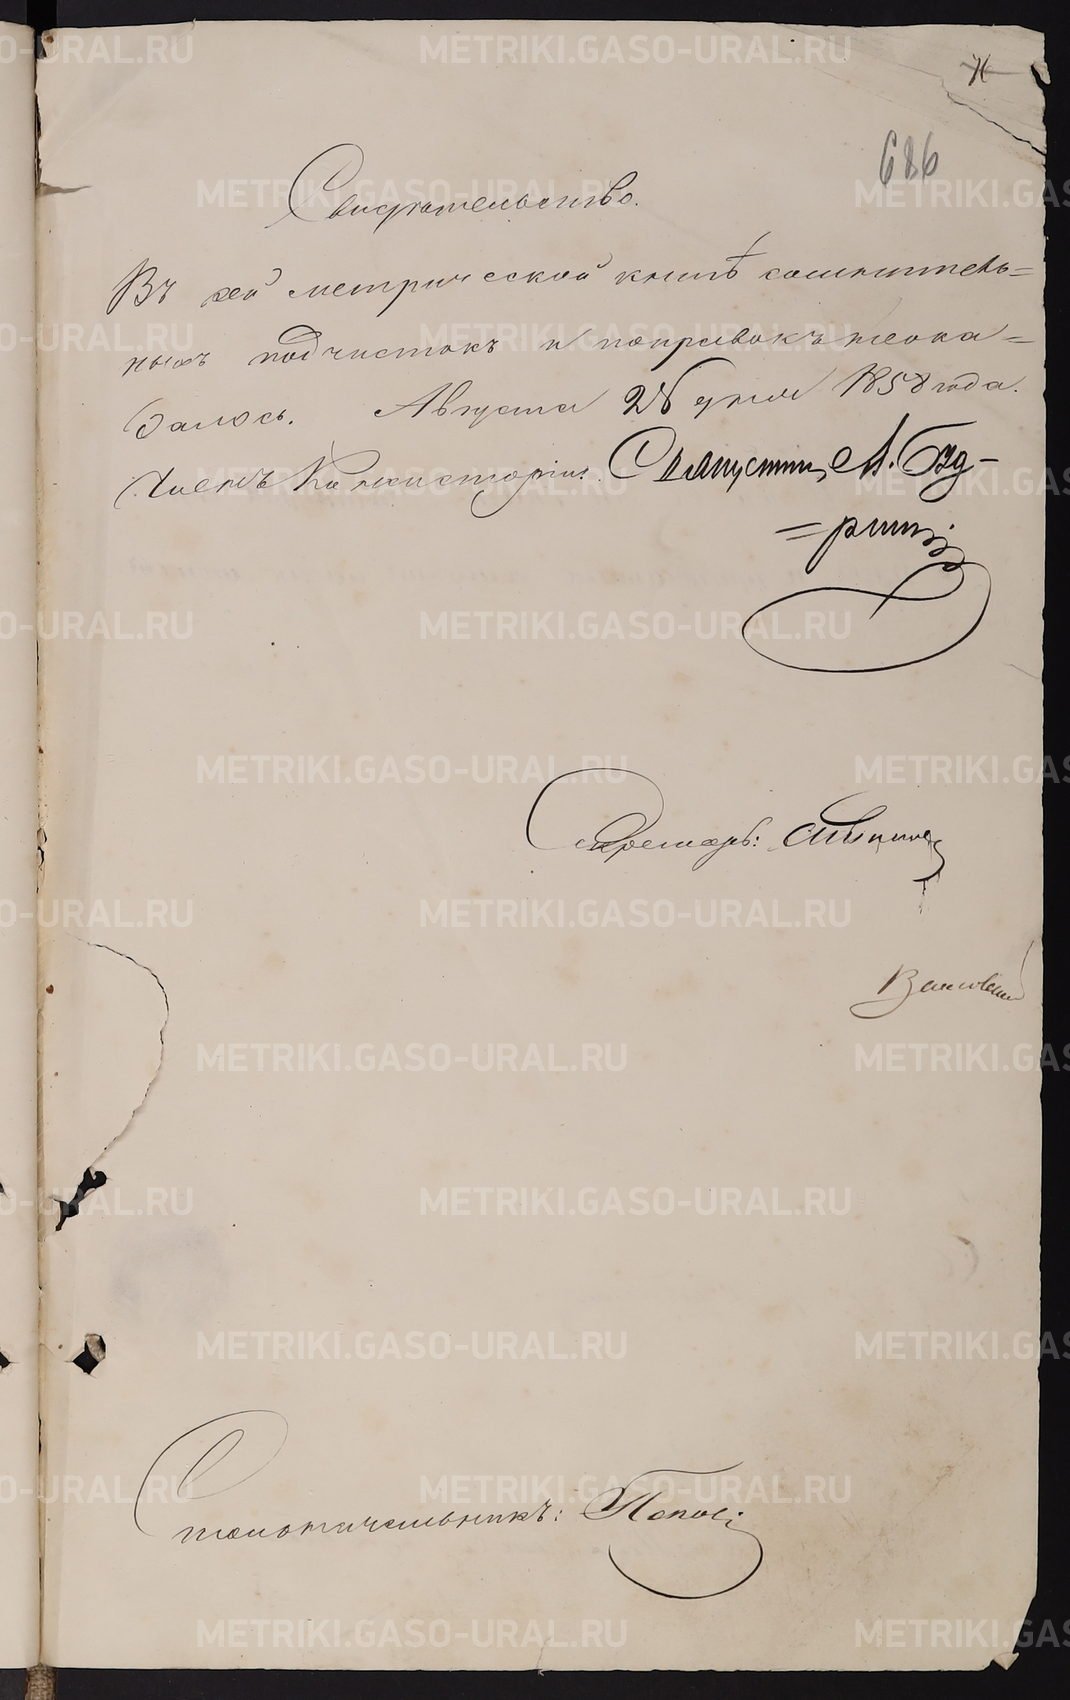 686
Свидѣтельство.
Въ сей метрической книгѣ сомнитель=
ныхъ подчистокъ и поправокъ не ока=
залось. Августа 28 дня 1858 года.
Членъ Консисторіи:
Секретарь:
Столоначальникъ: Поповъ
METRIKI.GASO-URAL.RU